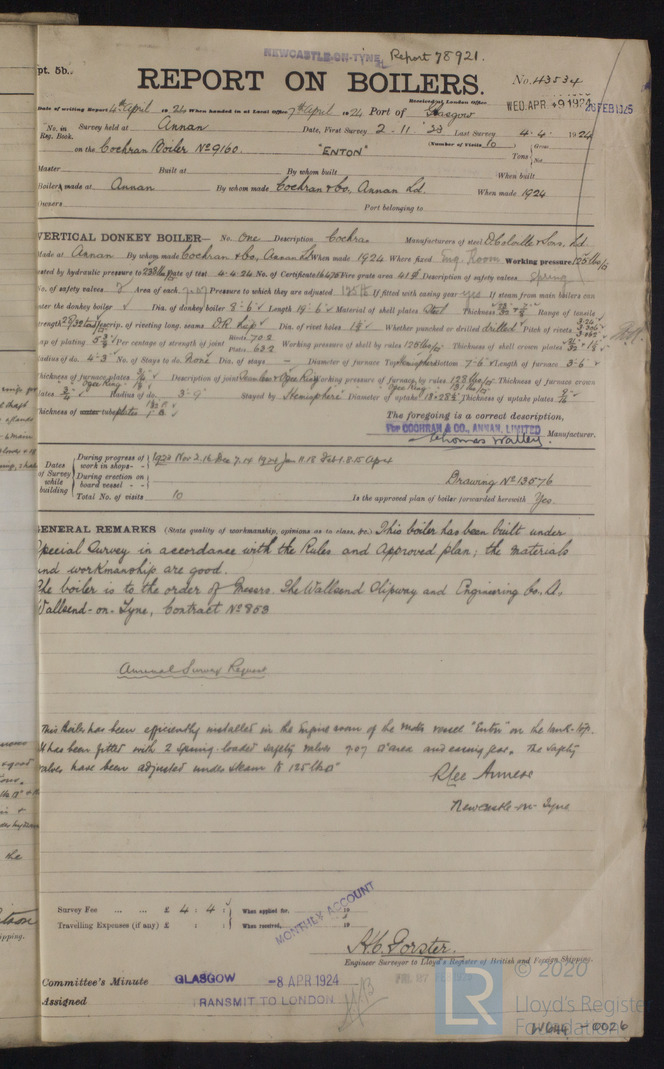 pt. 5b.
NEWCASTLE-ON-TYNE Report 78921.
REPORT ON BOILERS.
No. 43534
Received at London Office WED. APR -9 1924 26 FEB 1925
Date of writing Report 4th April 1924 When handed in at Local Office 7th April 1924 Port of Glasgow
No. in Reg. Book. Survey held at Annan Date, First Survey 2-11-23 Last Survey 4-4-1924
on the Cochran Boiler No 9160. "ENTON" (Number of Visits 10) Tons Gross Net
Master Built at By whom built When built
Boilers made at Annan By whom made Cochran & Co, Annan Ld. When made 1924
Owners Port belonging to
VERTICAL DONKEY BOILER— No. One Description Cochran Manufacturers of steel D. Colville & Sons, Ld.
Made at Annan By whom made Cochran & Co, Annan Ld When made 1924 Where fixed Eng. Room Working pressure 125 lbs
tested by hydraulic pressure to 238 lbs Date of test 4-4-24 No. of Certificate Fire grate area Description of safety valves Spring
No. of safety valves 2 Area of each 7.07 Pressure to which they are adjusted 125 lb If fitted with easing gear yes If steam from main boilers can
enter the donkey boiler Dia. of donkey boiler 8-6 Length 19-6 Material of shell plates Steel Thickness Range of tensile
strength Descrip. of riveting long. seams D.R. Lap Dia. of rivet holes Whether punched or drilled drilled Pitch of rivets
Lap of plating Per centage of strength of joint Rivets 70.2 Plates 62.2 Working pressure of shell by rules Thickness of shell crown plates
Radius of do. 4-3 No. of Stays to do. None Dia. of stays — Diameter of furnace Top Hemisphere Bottom 7-6 Length of furnace 3-6
Thickness of furnace plates Description of joint Working pressure of furnace by rules 128 lbs Thickness of furnace crown
plates Radius of do. 3-9 Stayed by Hemisphere Diameter of uptake Thickness of uptake plates
Thickness of water tubes
The foregoing is a correct description,
For COCHRAN & CO., ANNAN, LIMITED
Thomas Walley. Manufacturer.
Dates of Survey while building
During progress of work in shops - - 1923 Nov 2.16 Dec 7.14 1924 Jan 11.18 Feb 1.8.15 Apr 4
During erection on board vessel - - - Drawing No 13576
Total No. of visits 10 Is the approved plan of boiler forwarded herewith Yes.
GENERAL REMARKS (State quality of workmanship, opinions as to class, &c.) This boiler has been built under
Special Survey in accordance with the Rules and Approved plan; the materials
and workmanship are good.
The boiler is to the order of Messrs. The Wallsend Slipway and Engineering Co. Ld.
Wallsend-on-Tyne, Contract No 853
Annual Survey Request
This Boiler has been efficiently installed in the Engine room of the motor vessel "Enton" on the tank top.
It has been fitted with 2 Spring loaded safety valves 7.07 □" area and easing gear. The Safety
valves have been adjusted under steam to 125 lbs □"
Newcastle-on-Tyne
Survey Fee ... ... £ 4 : 4 : When applied for, 19
Travelling Expenses (if any) £ : : When received, 19
MONTHLY ACCOUNT
H.C. Forster.
Engineer Surveyor to Lloyd's Register of British and Foreign Shipping.
Committee's Minute GLASGOW -8 APR 1924
Assigned TRANSMIT TO LONDON
LR © 2020
Lloyd's Register
Foundation
W644-0026